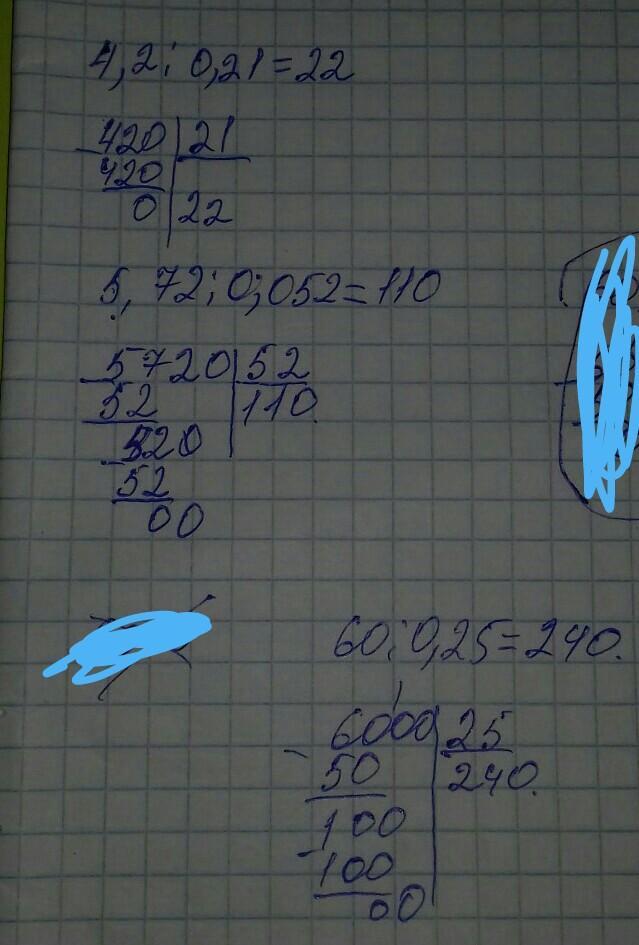 4,2 : 0,21 = 22
420 | 21
420
0 | 22
5, 72 : 0,052 = 110
5720 | 52
52 | 110.
520
52
00
60 : 0,25 = 240.
6000 | 25
50 | 240.
100
100
00